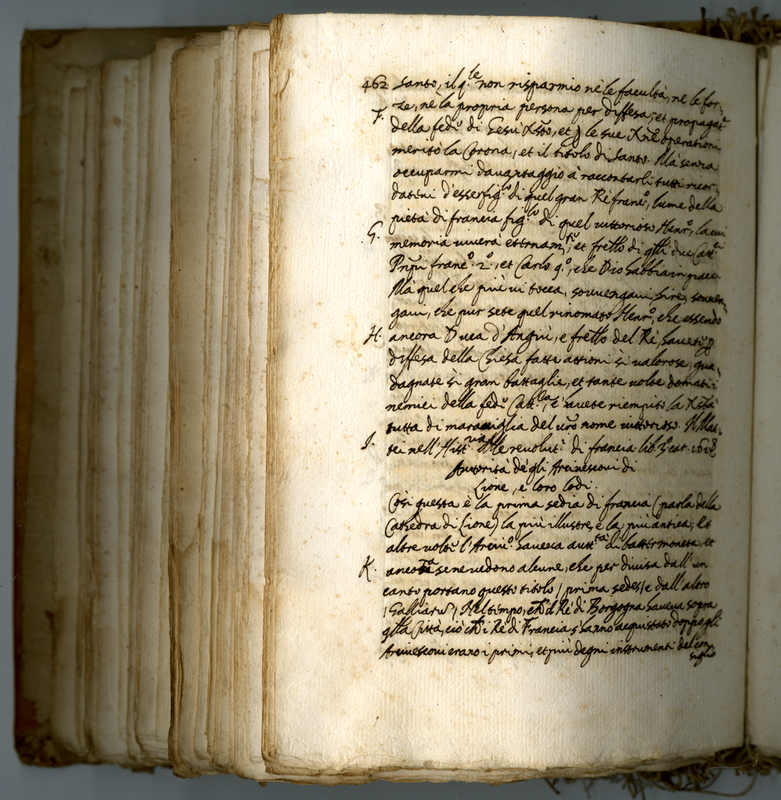 462 Santo, il q.le non risparmio nè le facultà, nè le for-
F. ze, nè la propria persona per diffesa, et propagat.e
della fede di Giesù Xsto, et p le sue Xne operationi
meritò la Corona, et il titolo di Santo. Mà senza
occuparmi davantaggio à raccontarli tutti ricor-
datevi d'esser fig.lo di quel gran Rè franc.o, lume della
pietà di francia fig.lo di quel vittorioso Henr.o, la cui
G. memoria viverà eternam.te, et frello di qlli due Catt.ci
Prnpi franc.o 2.o, et Carlo 9.o, che Dio habbia in pace.
Mà quel che più vi tocca, sovvengavi Sire, sovven-
gavi, che pur sete quel rinomato Henr.o, che essendo
H. ancora Duca d'Angiù, e frello del Rè havete p
diffesa della Chiesa fatte attioni sì valorose, gua-
dagnate sì gran battaglie, et tante volte domati i
nemici della fede Catt.lca, e havete riempito la Xstà
tutta di maraviglia del vro nome vittorioso. Il Mat-
I. tei nell' Hist.ria delle revolut.i di francia lib. 3. car.
Autorità de gli Arcivescovi di
Lione, e loro lodi.
Così questa è la prima sedia di francia (parla della
Cathedra di Lione) la più illustre, e la più antica; Et
altre volte l'Arciv.o haveva autt.tà di batter moneta, et
K. ancora se ne vedono alcune, che per divisa dall' un
canto portano questo titolo / prima sedes / e dall' altro
/ Galliaru / Nel tempo, ch'il Rè di Borgogna haveva sopra
qlla Città, ciò ch'i Rè di Francia s'hanno acquistato doppo gli
Arcivescovi erano i primi, et più degni instrumenti del con-
siglio